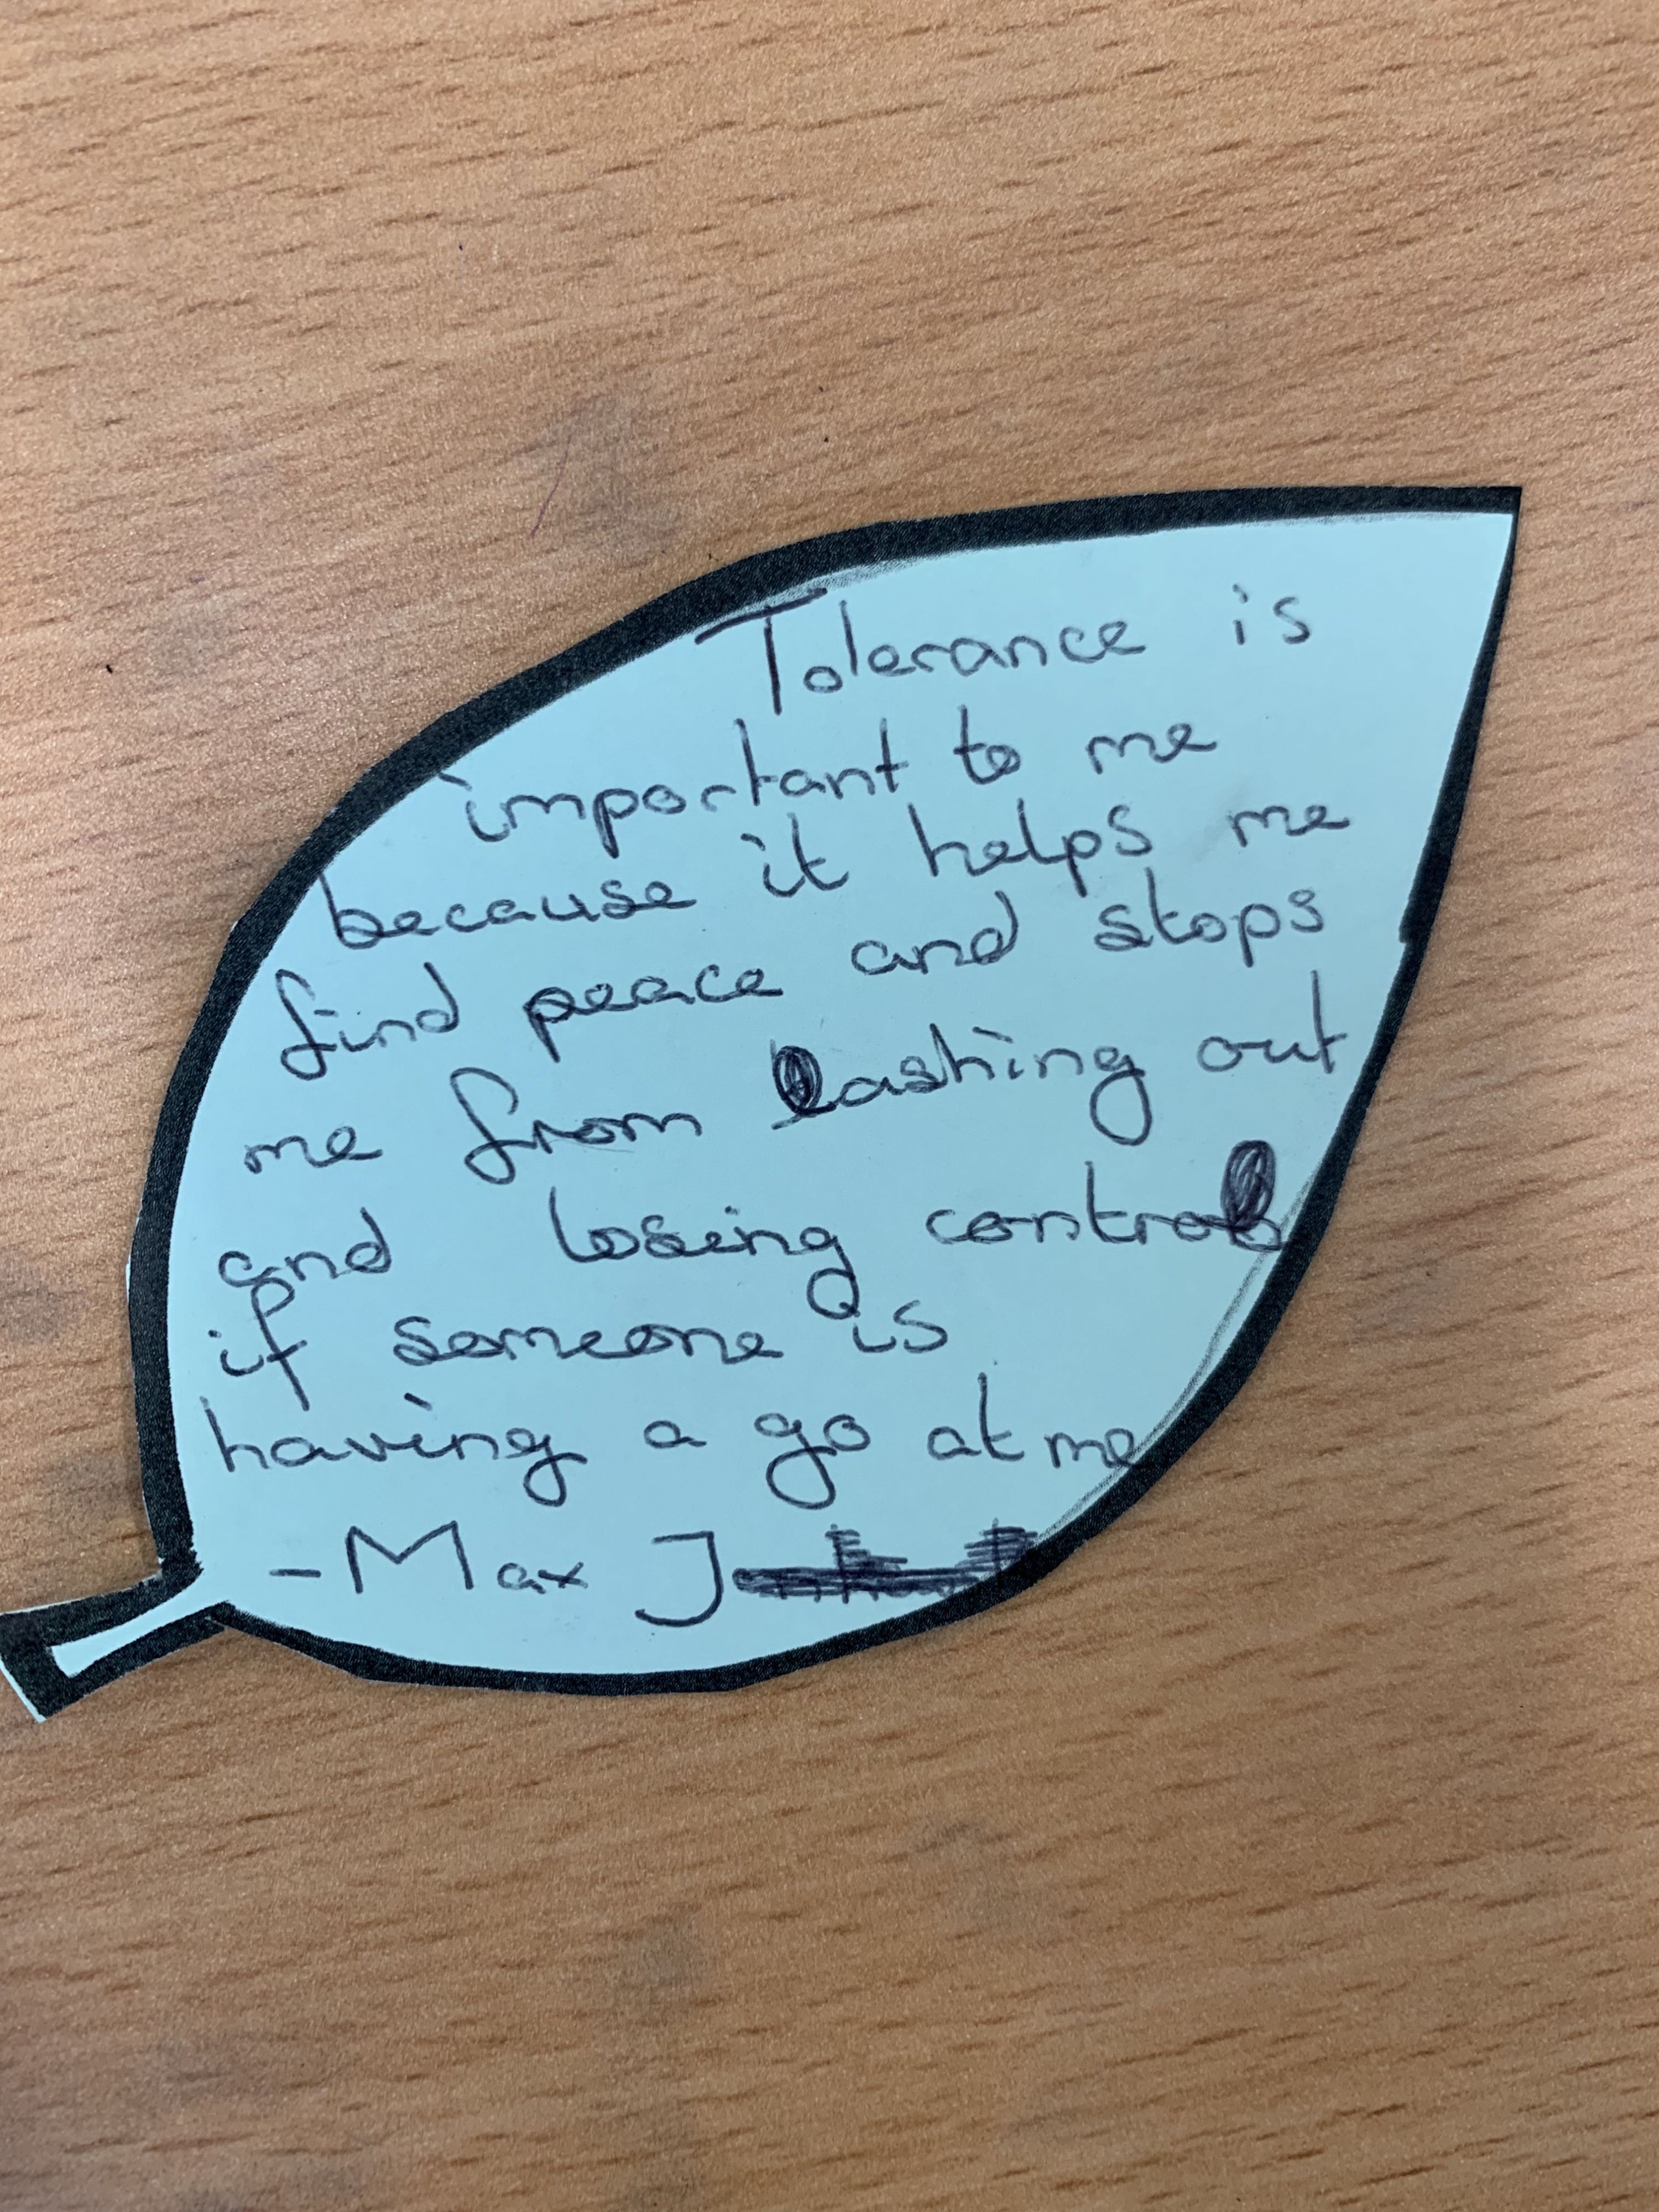 Tolerance is
important to me
because it helps me
find peace and stops
me from lashing out
and losing control
if someone is
having a go at me
-Max J